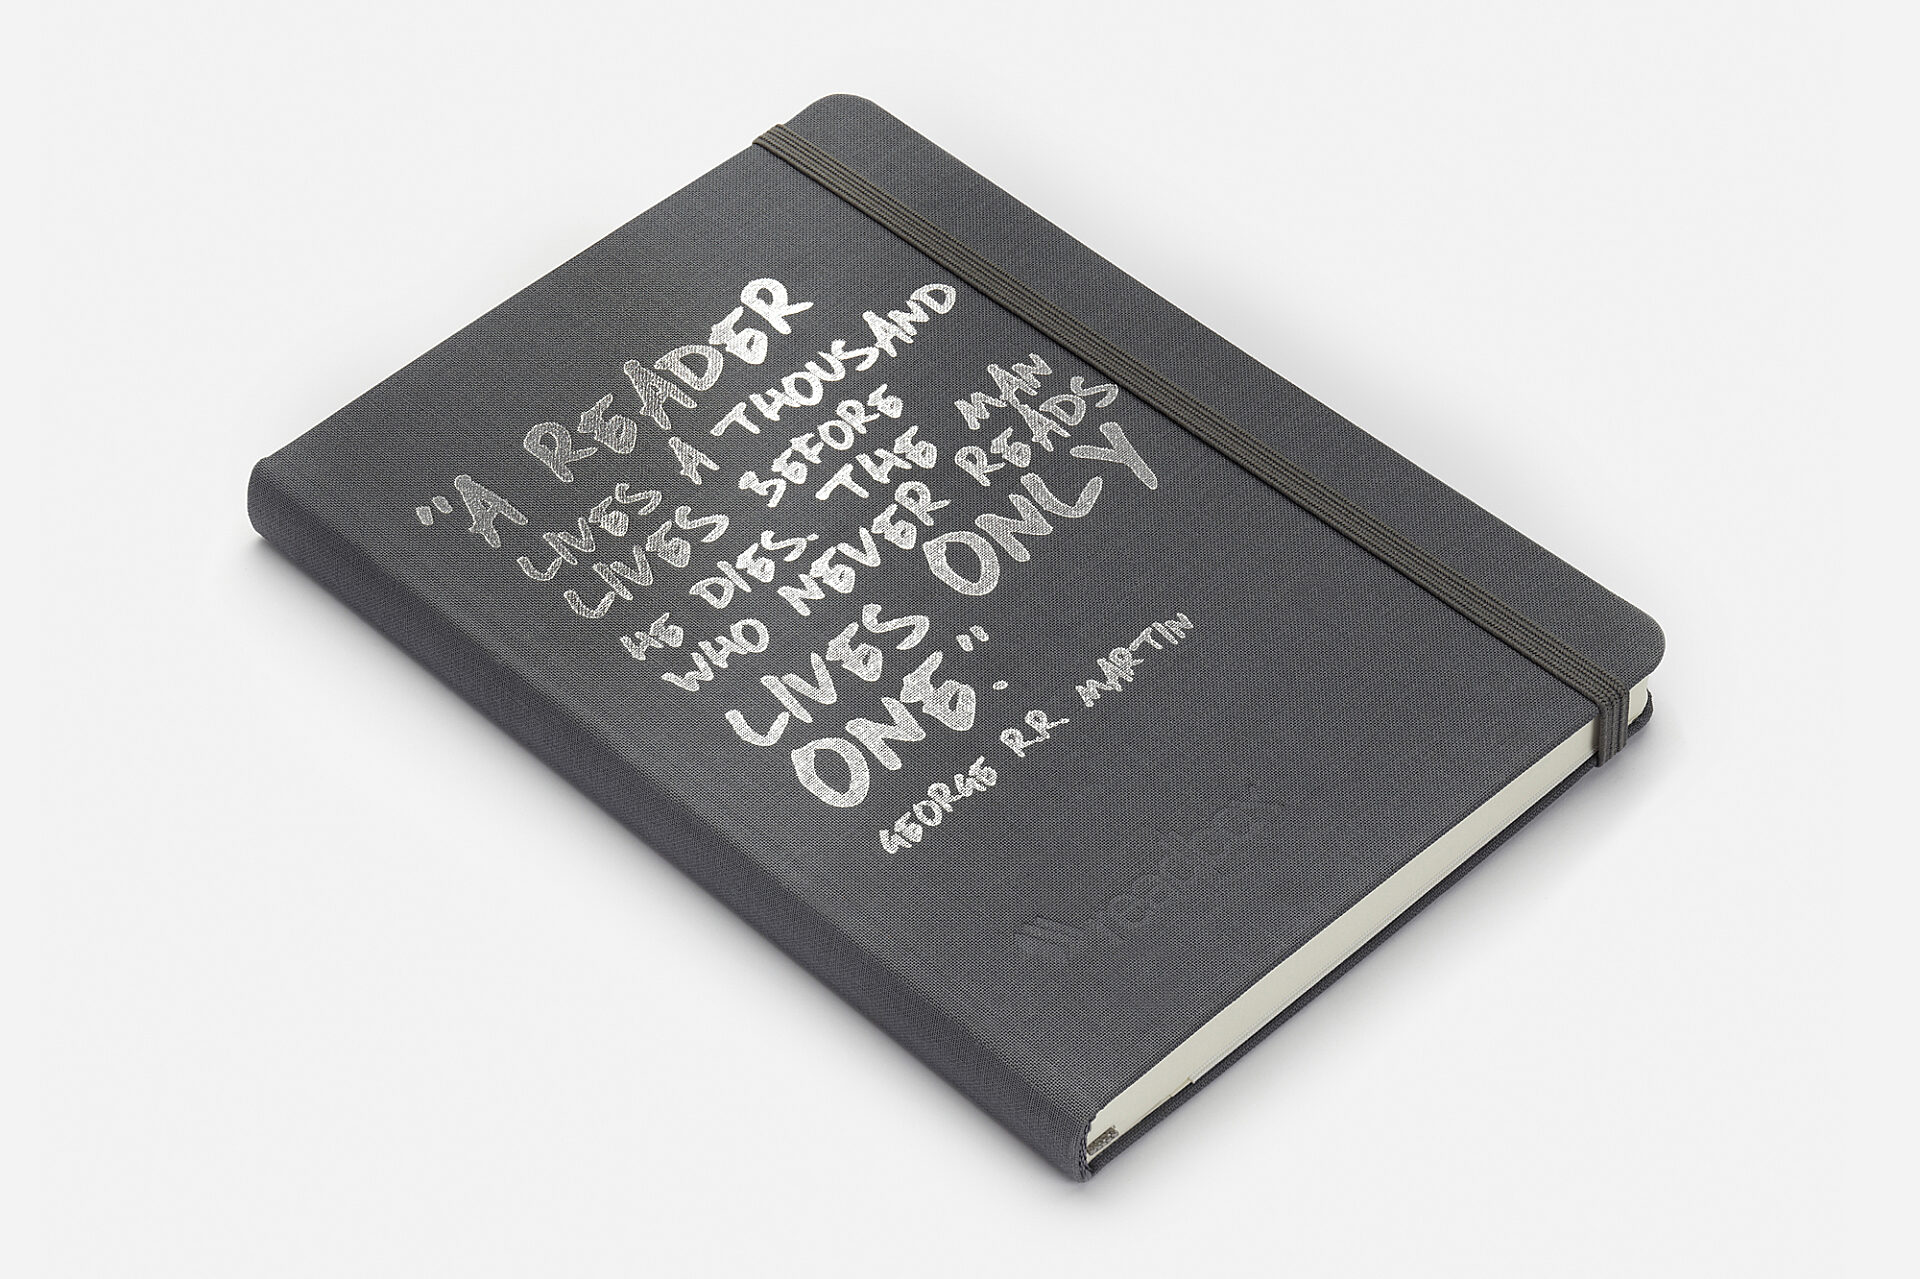 "A READER
LIVES A THOUSAND
LIVES BEFORE
HE DIES. THE MAN
WHO NEVER READS
LIVES ONLY
ONE".
GEORGE R.R. MARTIN